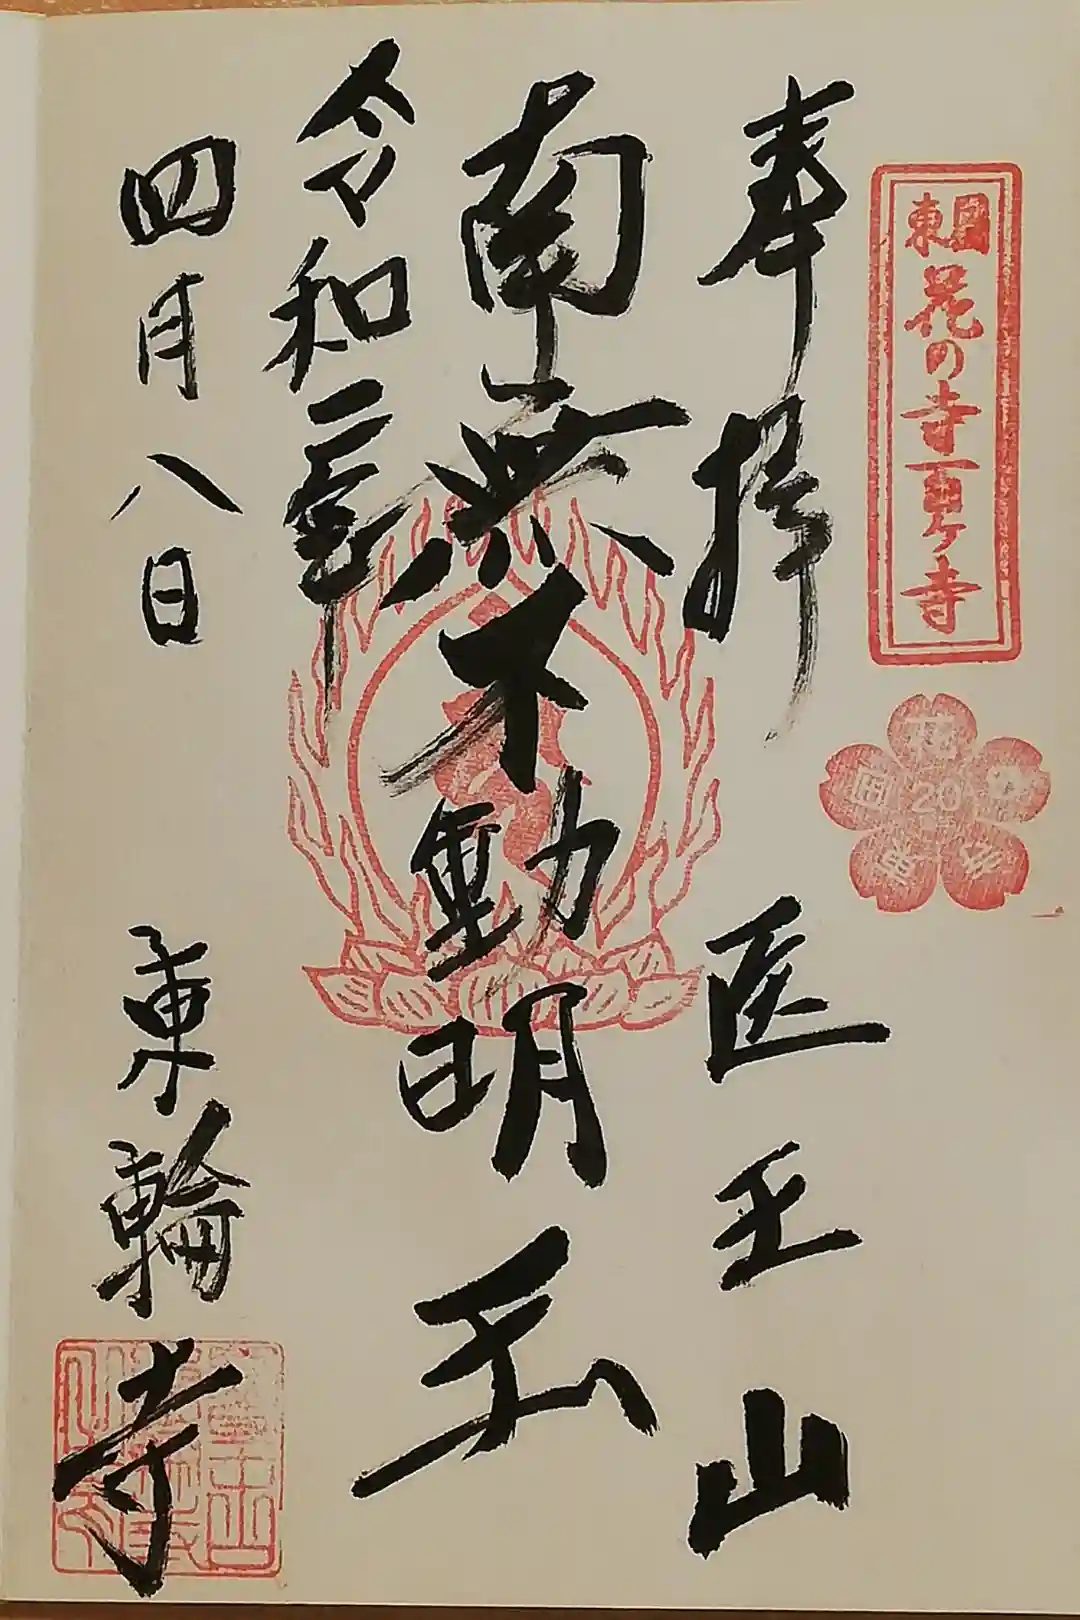 関東花の寺百ヶ寺
奉拝 医王山
南無不動明王
令和二年
四月八日 東輪寺
20